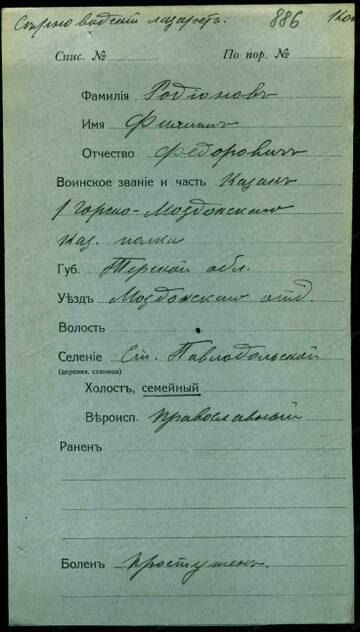 лазаретъ. 886
Спис. № По пор. №
Фамилія Родіоновъ
Имя Филиппъ
Отчество Федоровичъ
Воинское званіе и часть Казакъ
1 Горско-Моздокскаго
Каз. полка
Губ. Терской обл.
Уѣздъ Моздокскаго отд.
Волость
Селеніе Ст. Павлодольской
(деревня, станица)
Холостъ, семейный
Вѣроисп. Православный
Раненъ
Боленъ Простуженъ.